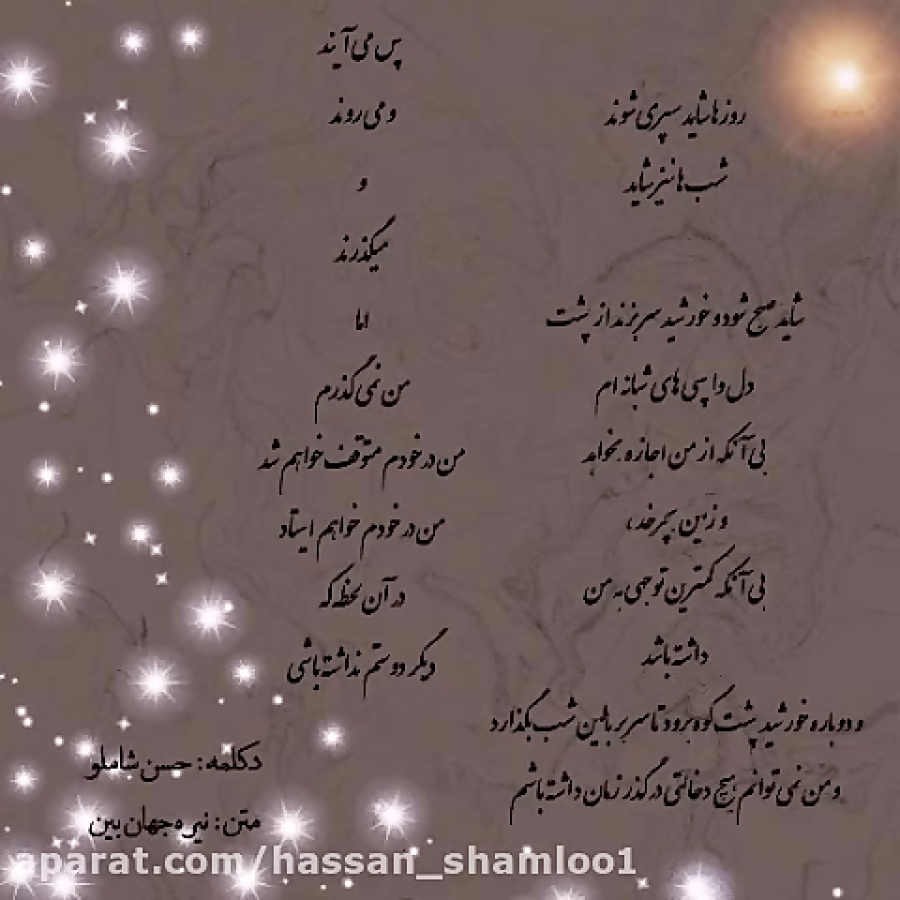 روزها شاید سپری شوند
شب ها نیز شاید
شاید صبح شود و خورشید سر بزند از پشت
دل واپسی های شبانه ام
بی آنکه از من اجازه بخواهد
و زمین بچرخد،
بی آنکه کمترین توجهی به من
داشته باشد
و دوباره خورشید پشت کوه برود تا سر بر بالین شب بگذارد
و من نمی توانم هیچ دخالتی در گذر زمان داشته باشم
پس می آیند
و می روند
و
میگذرند
اما
من نمی گذرم
من در خودم متوقف خواهم شد
من در خودم خواهم ایستاد
در آن لحظه که
دیگر دوستم نداشته باشی
دکلمه: حسن شاملو
متن: نیره جهان بین
aparat.com/hassan_shamloo1